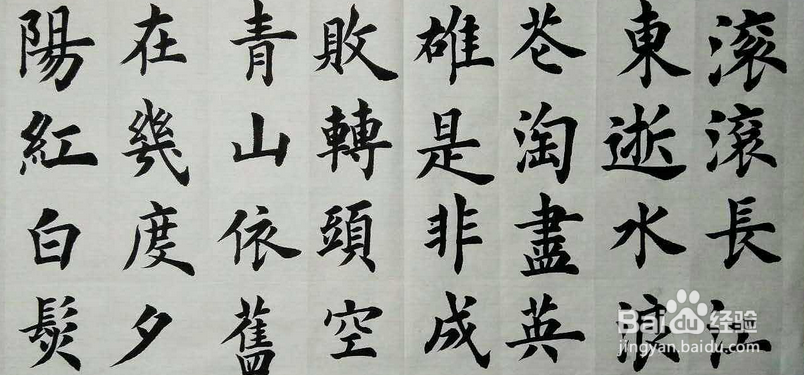 滚滾長江
東逝水浪
花淘盡英
雄是非成
敗轉頭空
青山依舊
在幾度夕
陽紅白髮
Baidu 经验
jingyan.baidu.com